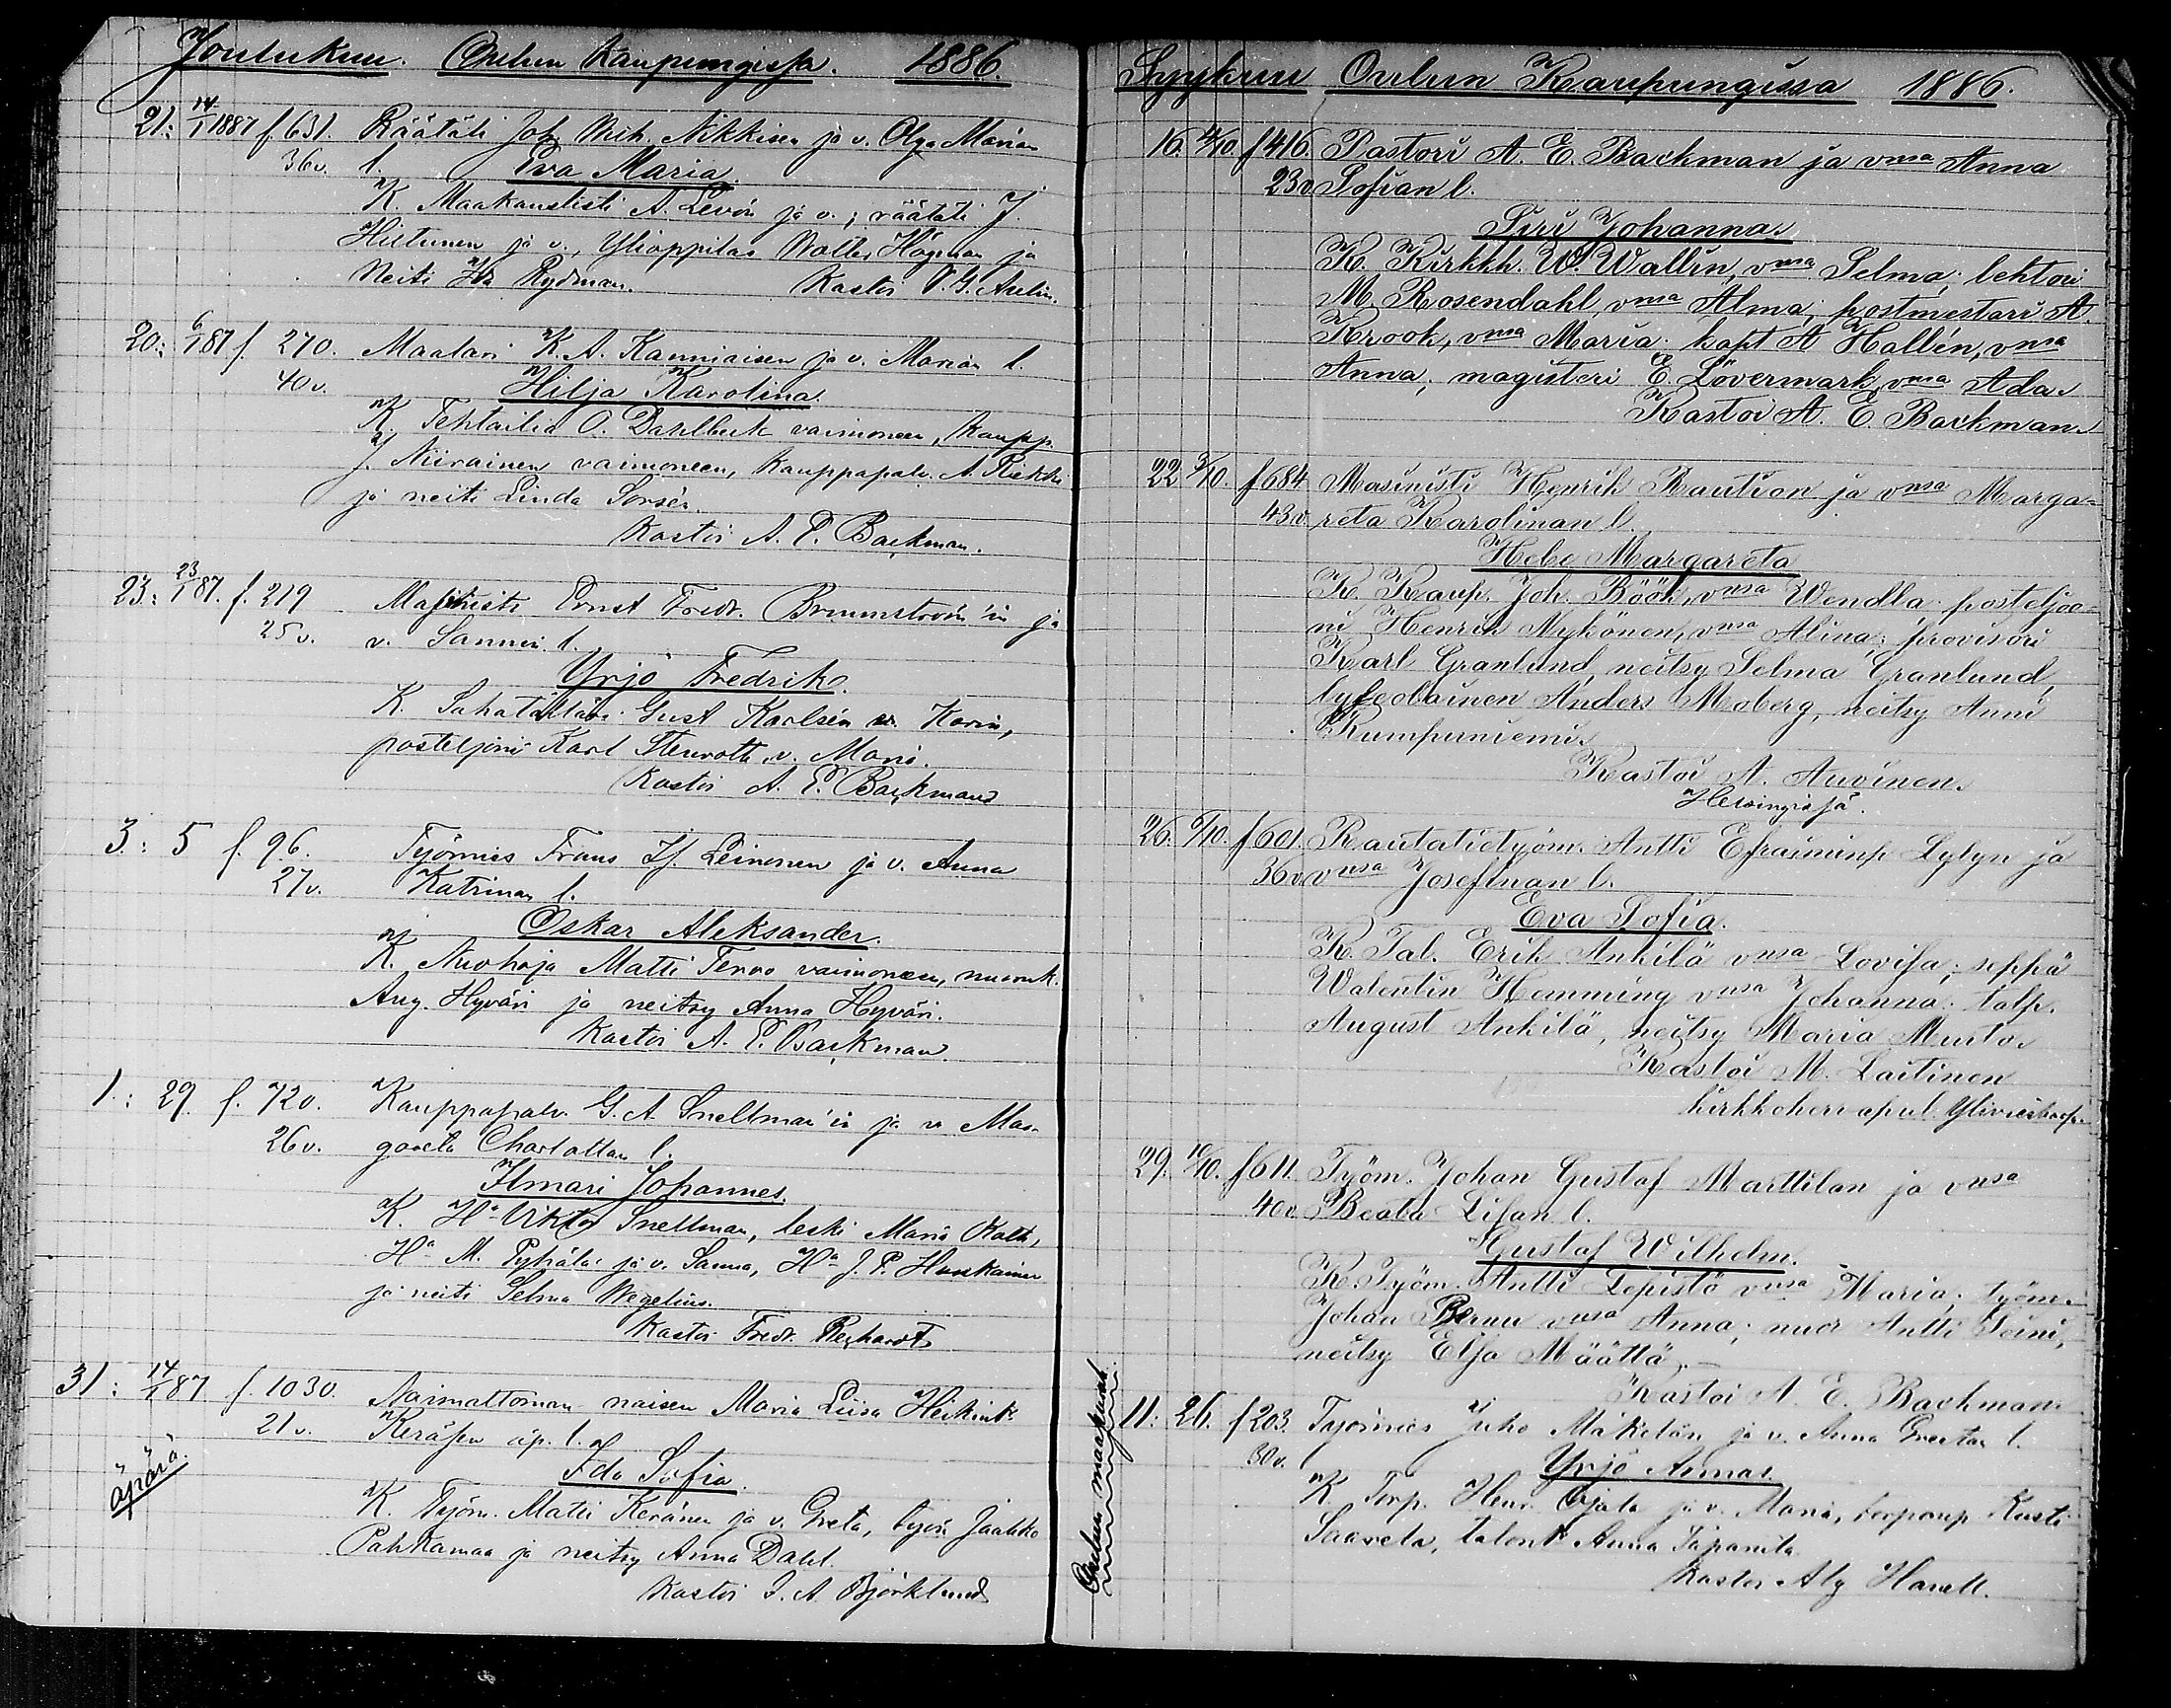 Joulukuu. Oulun Kaupungissa. 1886.
21: 14/1 1887 f. 631. Räätäli Joh. Mih. Nikkisen ja v. Olga Marian
36v. l.
Eva Maria
K. Maakauslisti A. Levón ja v.; räätäli J.
Hiltunen ja v., Ylioppilas Walter Högman ja
Neiti Ida Rydman. Kastoi V. G. Aulin.
20: 6/1 87 f. 270. Maalari K. A. Kanniaisen ja v. Marian l.
40v.
Hilja Karolina
K. Tehtailia O. Dahlbeck vaimoneen, Kaupp.
J. Niirainen vaimoneen, Kauppapalv. A. Piekki
ja neiti Linda Sorsén.
Kastoi A. E. Backman.
23: 23/1 87. f. 219 Masinisti Ernst Fredr. Brunnström'in ja
25v. v. Sannin l.
Yrjö Fredrik.
K. Gust Karlsén v. Karin,
posteljoni Karl Stenroth v. Maria.
Kastoi A. E. Backman
3.: 5 f. 96. Työmies Frans Is. Leinonen ja v. Anna
27v. Katrinan l.
Oskar Aleksander.
K. Nuohoja Matti Tervo vaimoneen, nuoruk.
Aug. Hyväri ja neitsy Anna Hyväri.
Kastoi A. E. Backman.
1.: 29. f. 720. Kauppapalv. G. A. Snellman'in ja v. Mar-
26v. gareta Charlottan l.
Ilmari Johannes.
K. Hra Viktor Snellman, leski Maria Kath,
Hra M. Pyhälä ja v. Sanna, Hra J. P. Huskainen
ja neiti Selma Wegelius.
Kastoi Fredr. Rechardt
31: 14/1 87 f. 1030. Naimattoman naisen Maria Liisa Heikint.
21v. Keräsen äp. l.
äpärä.
Ida Sofia.
K. Työm. Matti Keränen ja v. Greta, työm. Jaakko
Pahkamaa ja neitsy Anna Dahl.
Kastoi I. A. Björklund
Syyskuu Oulun Kaupungissa 1886.
16. 4/10. f 416. Pastori A. E. Backman ja vnsa Anna
23v Sofian l.
Siri Johanna.
K. Kirkkh. W. Wallin, vnsa Selma; lehtori
M. Rosendahl, vnsa Alma; postmestari A.
Krook, vnsa Maria; kapt A Hallén, vnsa
Anna; magisteri E. Lövenmark, vnsa Ada.
Kastoi A. E. Backman.
22 3/10. f 684 Masinisti Henrik Raution ja vnsa Marga-
43v. reta Karolinan l.
Hebe Margareta
K. Kaup. Joh. Böök, vnsa Wendla; posteljoo-
ni Henrik Nykänen, vnsa Alina; provisori
Karl Granlund, neitsy Selma Granlund,
lyseolainen Anders Moberg, neitsy Anni
Kumpuniemi.
Kastoi A. Auvinen.
Helsingissä.
26. /10. f 601. Rautatietyöm. Antti Efraiminp. Lylyn ja
36v vnsa Josefinan l.
Eva Sofia.
K. Tal. Erik Ankilä vnsa Lovisa; seppä
Walentin Hemming vnsa Johanna; talp.
August Ankilä, neitsy Maria Musto.
Kastoi M. Laitinen
kirkkoherr apul. Ylivieskasa.
29. 10/10. f 611. Työm. Johan Gustaf Marttilan ja vnsa
40v. Beata Lisan l.
Gustaf Wilhelm.
K. Työm. Antti Lepistö vnsa Maria; työm.
Johan vnsa Anna; nuor Antti
neitsy Elsa Määttä.
Kastoi A. E. Backman.
Oulun maaseurak.
11: 26. f 203. Työmies Juho Mäkelän ja v. Anna Greetan l.
30v.
Yrjö Armas.
K Torp. Henr. Ojala ja v. Maria, torparip Kusti
Saarela, talont Anna Tapanila.
Kastoi Alg Hanell.